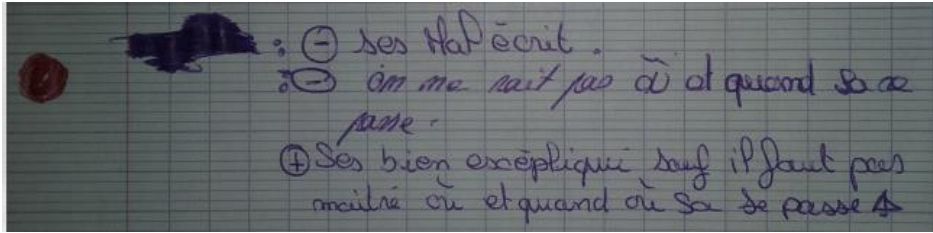 : ⊖ ses Mal écrit.
: ⊖ om me sait pas où et quand sa se
passe.
⊕ Ses bien excépliqui sauf il faut pas
maitré où et quand où sa se passe